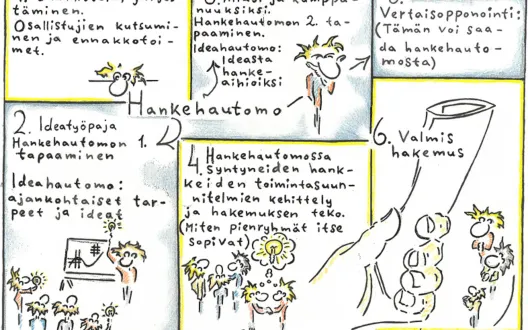 täminen.
Osallistujien kutsumi-
nen ja ennakkotoi-
met.
nuuksiksi.
Hankehautomon 2. ta-
paaminen.
Ideahautomo:
Ideasta
hanke-
aihioiksi
Vertaisopponointi:
(Tämän voi saa-
da hankehauto-
mosta)
Hankehautomo
2. Ideatyöpaja
Hankehautomon 1.
tapaaminen
Ideahautomo:
ajankohtaiset tar-
peet ja ideat
4. Hankehautomossa
syntyneiden hank-
keiden toimintasuun-
nitelmien kehittely
ja hakemuksen teko.
(Miten pienryhmät itse
sopivat)
6. Valmis
hakemus